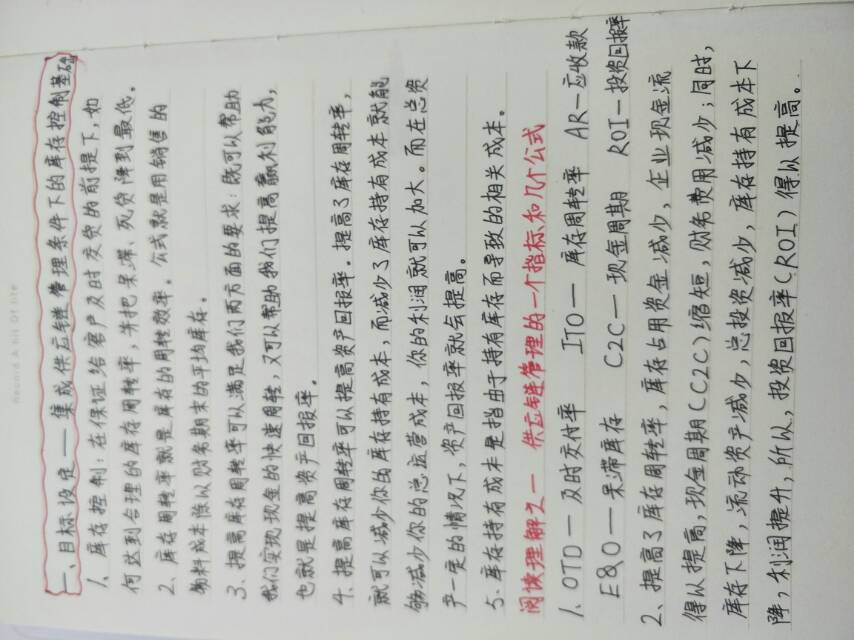 Record A Bit Of Life
一、目标设定——集成供应链管理条件下的库存控制基础
1、库存控制：在保证给客户及时交货的前提下，如
何达到合理的库存周转率，并把呆滞、死货降到最低。
2、库存周转率就是库存的周转效率。公式就是用销售的
物料成本除以财务期末的平均库存。
3、提高库存周转率可以满足我们两方面的要求：既可以帮助
我们实现现金的快速周转，又可以帮助我们提高赢利能力，
也就是提高资产回报率。
4、提高库存周转率可以提高资产回报率。提高了库存周转率，
就可以减少你的库存持有成本，而减少了库存持有成本就能
够减少你的总运营成本，你的利润就可以加大。而在总资
产一定的情况下，资产回报率就会提高。
5、库存持有成本是指由于持有库存而导致的相关成本。
阅读理解之一 供应链管理的一个指标和几个公式
1、OTD—及时交付率 ITO—库存周转率 AR—应收款
E&O—呆滞库存 C2C—现金周期 ROI—投资回报率
2、提高了库存周转率，库存占用资金减少，企业现金流
得以提高，现金周期(C2C)缩短，财务费用减少；同时，
库存下降，流动资产减少，总投资减少，库存持有成本下
降，利润提升，所以，投资回报率(ROI)得以提高。